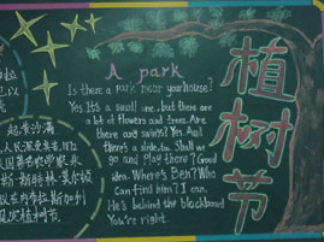 A park
Is there a park near your house?
Yes. It's a small one, but there are
a lot of flowers and trees. Are
there any swings? Yes. And
there's a slide, to. Shall we
go and play there? Good
idea. Where's Ben? Who
Can find him? I can.
He's behind the blackboard
You're right.
植树节
起黄沙满
人民深受其
斯·斯特林·莫尔顿
在内布拉斯加州
植树节